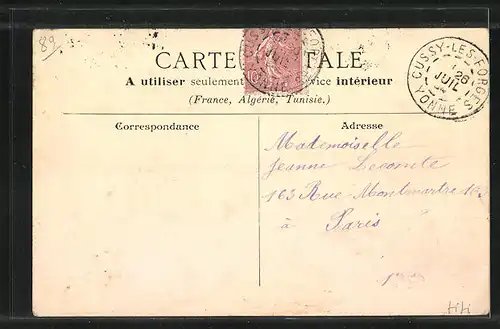 89
CARTE POSTALE
A utiliser seulement service intérieur
(France, Algérie, Tunisie.)
CUSSY-LES-FORGES
26
JUIL
YONNE
Correspondance
Adresse
Mademoiselle
Jeanne Lecomte
163 Rue Montmartre
à Paris